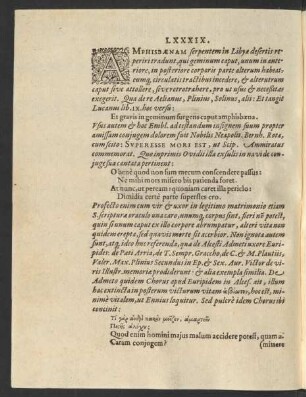 LXXXIX.
AMPHISBÆNAM serpentem in Libyæ desertis re-
periri tradunt, qui geminum caput, unum in ante-
riore, in posteriore corporis parte alterum habeat:
eumq́; circulatis tractibus incedere, & alterutrum
caput sive attollere, sive retrotrahere, pro ut usus & necessitas
exegerit. Qua de re Aelianus, Plinius, Solinus, alii: Et tangit
Lucanus lib. IX. hoc versu:
Et gravis in geminum surgens caput amphisbæna.
Usus autem & hoc Embl. ad ostendendum insignem suum propter
amissam conjugem dolorem fuit Nobilis Neapolit. Bernh. Rota,
cum scito: SUPERESSE MORI EST, ut Scip. Ammiratus
commemorat. Quæ inprimis Ovidii illa exulis in navi de conju-
ge sua cantata pertinent:
O bene quod non sum mecum conscendere passus:
Ne mihi mors misero bis patienda foret.
At nunc, ut peream, quoniam caret illa periclo:
Dimidia certe parte superstes ero.
Profecto enim cum vir & uxor in legitimo matrimonio etiam
S. scriptura oraculo una caro, unumq́; corpus sint, fieri nõ potest,
quin si unum caput ex illo corpore abrumpatur, alteri vita quasi
quidem erepta, sed quavis morte sit acerbior. Non ignota autem
sunt, atq́; ideo hoc referenda, quæ de Alcesti Admeti uxore Euripi-
des: de Pati Arria, de T. Sempr. Graccho, de C. & M. Plautiis,
Valer. Max. Plinius Secundus in Ep. & Sex. Aur. Victor de vi-
ris Illustr. memoriæ prodiderunt: & alia exempla similia. De
Admeto quidem Chorus apud Euripidem in Alcest. ait, illum
hac extincta in posterum victurum vitam ἀβίωτον, hoc est, mi-
nimè vitalem, ut Ennius loquitur. Sed pulcrè idem Chorus ibi
continit:
Τί γὰρ ἀνδρὶ κακὸν μεῖζον, ἁμαρτεῖν
Πιστῆς ἀλόχου;
Quod enim homini majus malum accidere potest, quam a-
Caram conjugem? (mittere